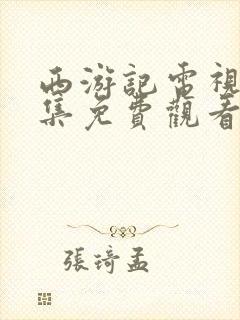 西游記電視
集免費觀看
張琦孟